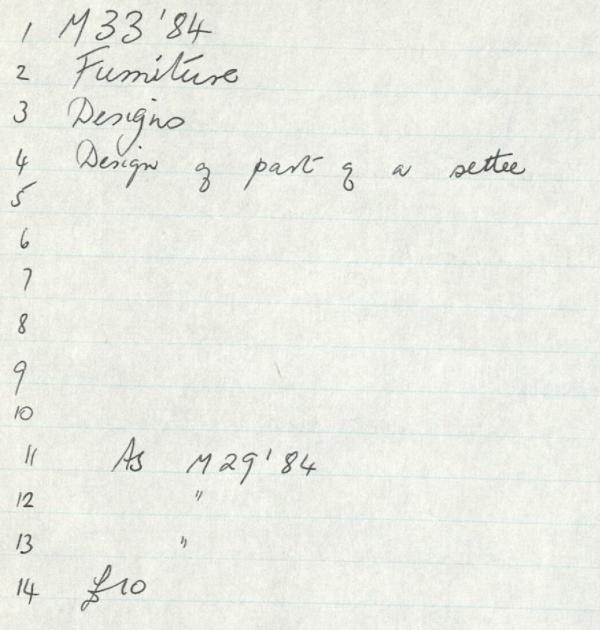 1 M33'84
2 Furniture
3 Designs
4 Design of part of a settee
5
6
7
8
9
10
11 As M29'84
12 "
13 "
14 £10